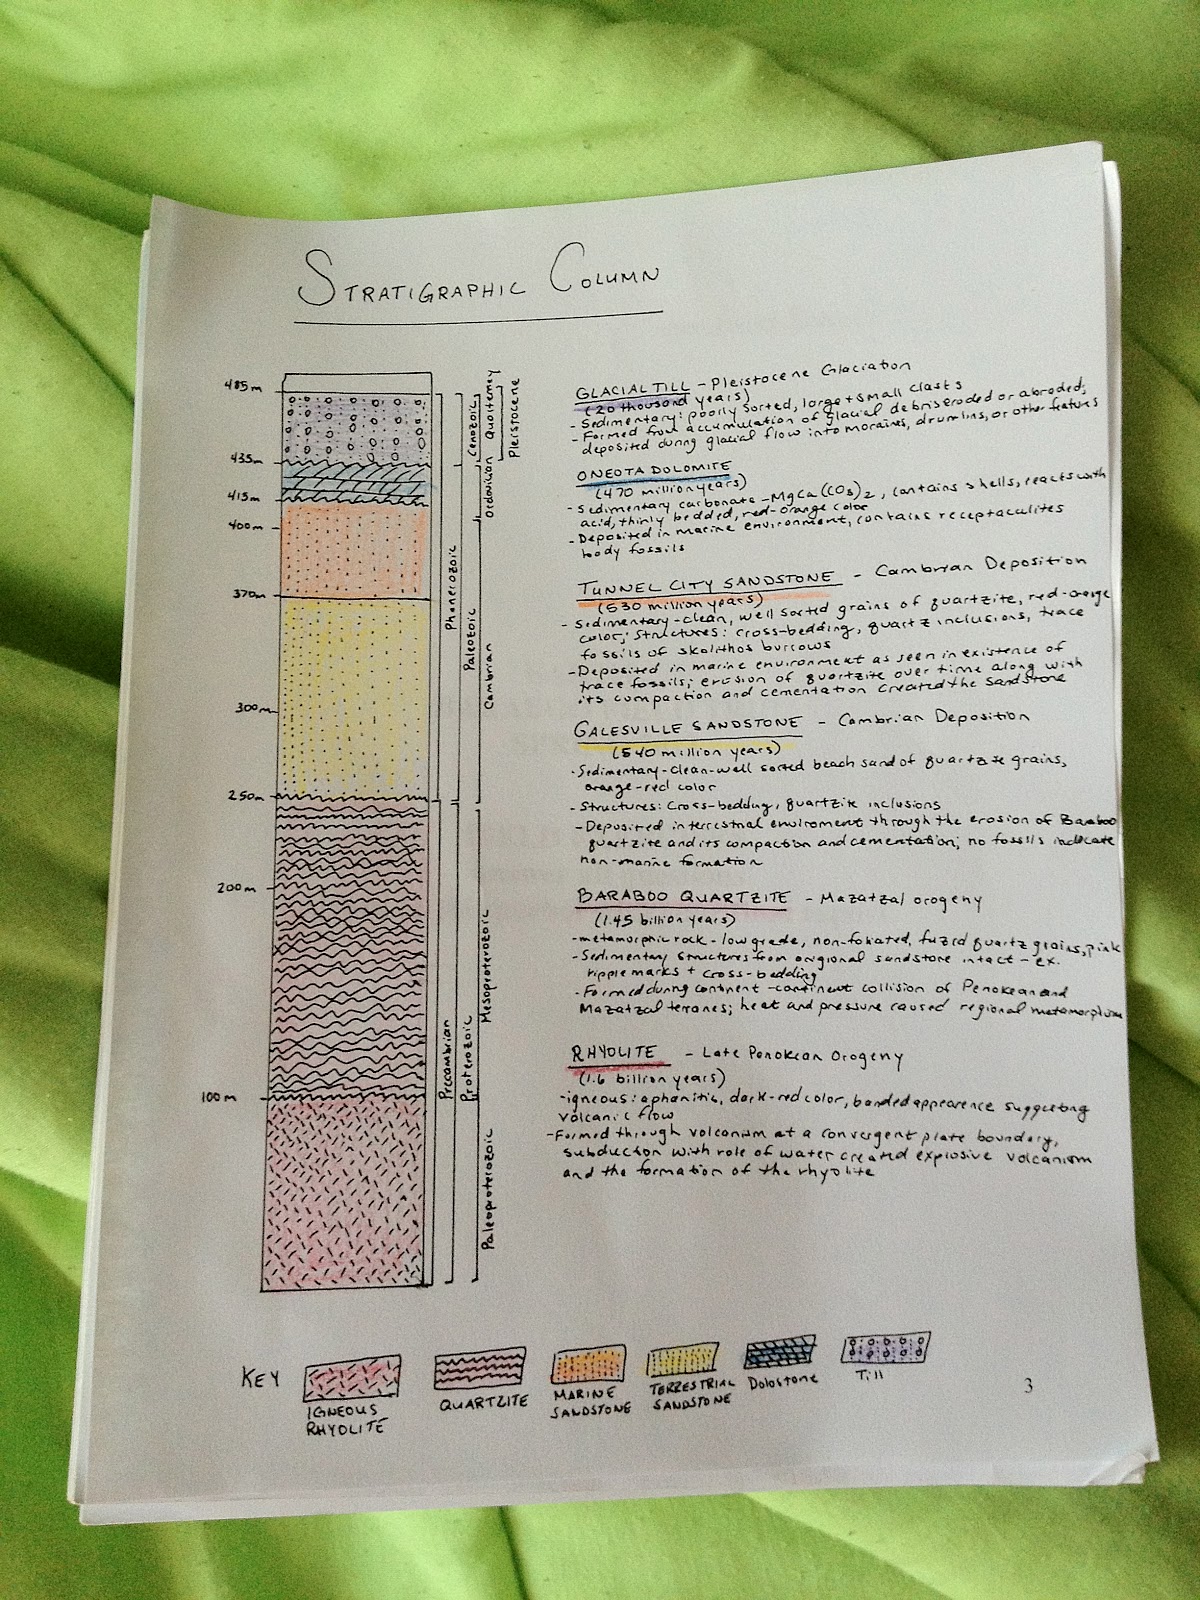 STRATIGRAPHIC COLUMN
485m
435m
415m
400m
370m
300m
250m
200m
100m
Phanerozoic
Precambrian
Cenozoic
Paleozoic
Proterozoic
Ordovician
Cambrian
Mesoproterozoic
Paleoproterozoic
Pleistocene
GLACIAL TILL - Pleistocene Glaciation
(20 thousand years)
- Sedimentary: poorly sorted, large + small clasts
- Formed from accumulation of glacial debris eroded or abraded;
deposited during glacial flow into moraines, drumlins, or other features
ONEOTA DOLOMITE
(470 million years)
- Sedimentary carbonate - MgCa(CO3)2, contains shells, reacts with
acid, thinly bedded, red-orange color
- Deposited in marine environment, contains receptaculites
body fossils
TUNNEL CITY SANDSTONE - Cambrian Deposition
(530 million years)
- Sedimentary-clean, well sorted grains of quartzite, red-orange
color; Structures: cross-bedding, quartz inclusions, trace
fossils of skolithos burrows
- Deposited in marine environment as seen in existence of
trace fossils; erosion of quartzite over time along with
its compaction and cementation created the sandstone
GALESVILLE SANDSTONE - Cambrian Deposition
(540 million years)
- Sedimentary-clean-well sorted beach sand of quartzite grains,
orange-red color
- Structures: Cross-bedding, quartzite inclusions
- Deposited in terrestrial enviroment through the erosion of Baraboo
quartzite and its compaction and cementation; no fossils indicate
non-marine formation
BARABOO QUARTZITE - Mazatzal orogeny
(1.45 billion years)
- metamorphic rock - low grade, non-foliated, fuzed quartz grains, pink
- Sedimentary structures from origional sandstone intact - ex.
ripple marks + cross-bedding
- Formed during continent-continent collision of Penokean and
Mazatzal terranes; heat and pressure caused regional metamorphism
RHYOLITE - Late Penokean Orogeny
(1.6 billion years)
- igneous: aphanitic, dark-red color, banded appearence suggesting
volcanic flow
- Formed through volcanism at a convergent plate boundary,
subduction with role of water created explosive volcanism
and the formation of the rhyolite
KEY
IGNEOUS
RHYOLITE
QUARTZITE
MARINE
SANDSTONE
TERRESTRIAL
SANDSTONE
Dolostone
Till
3